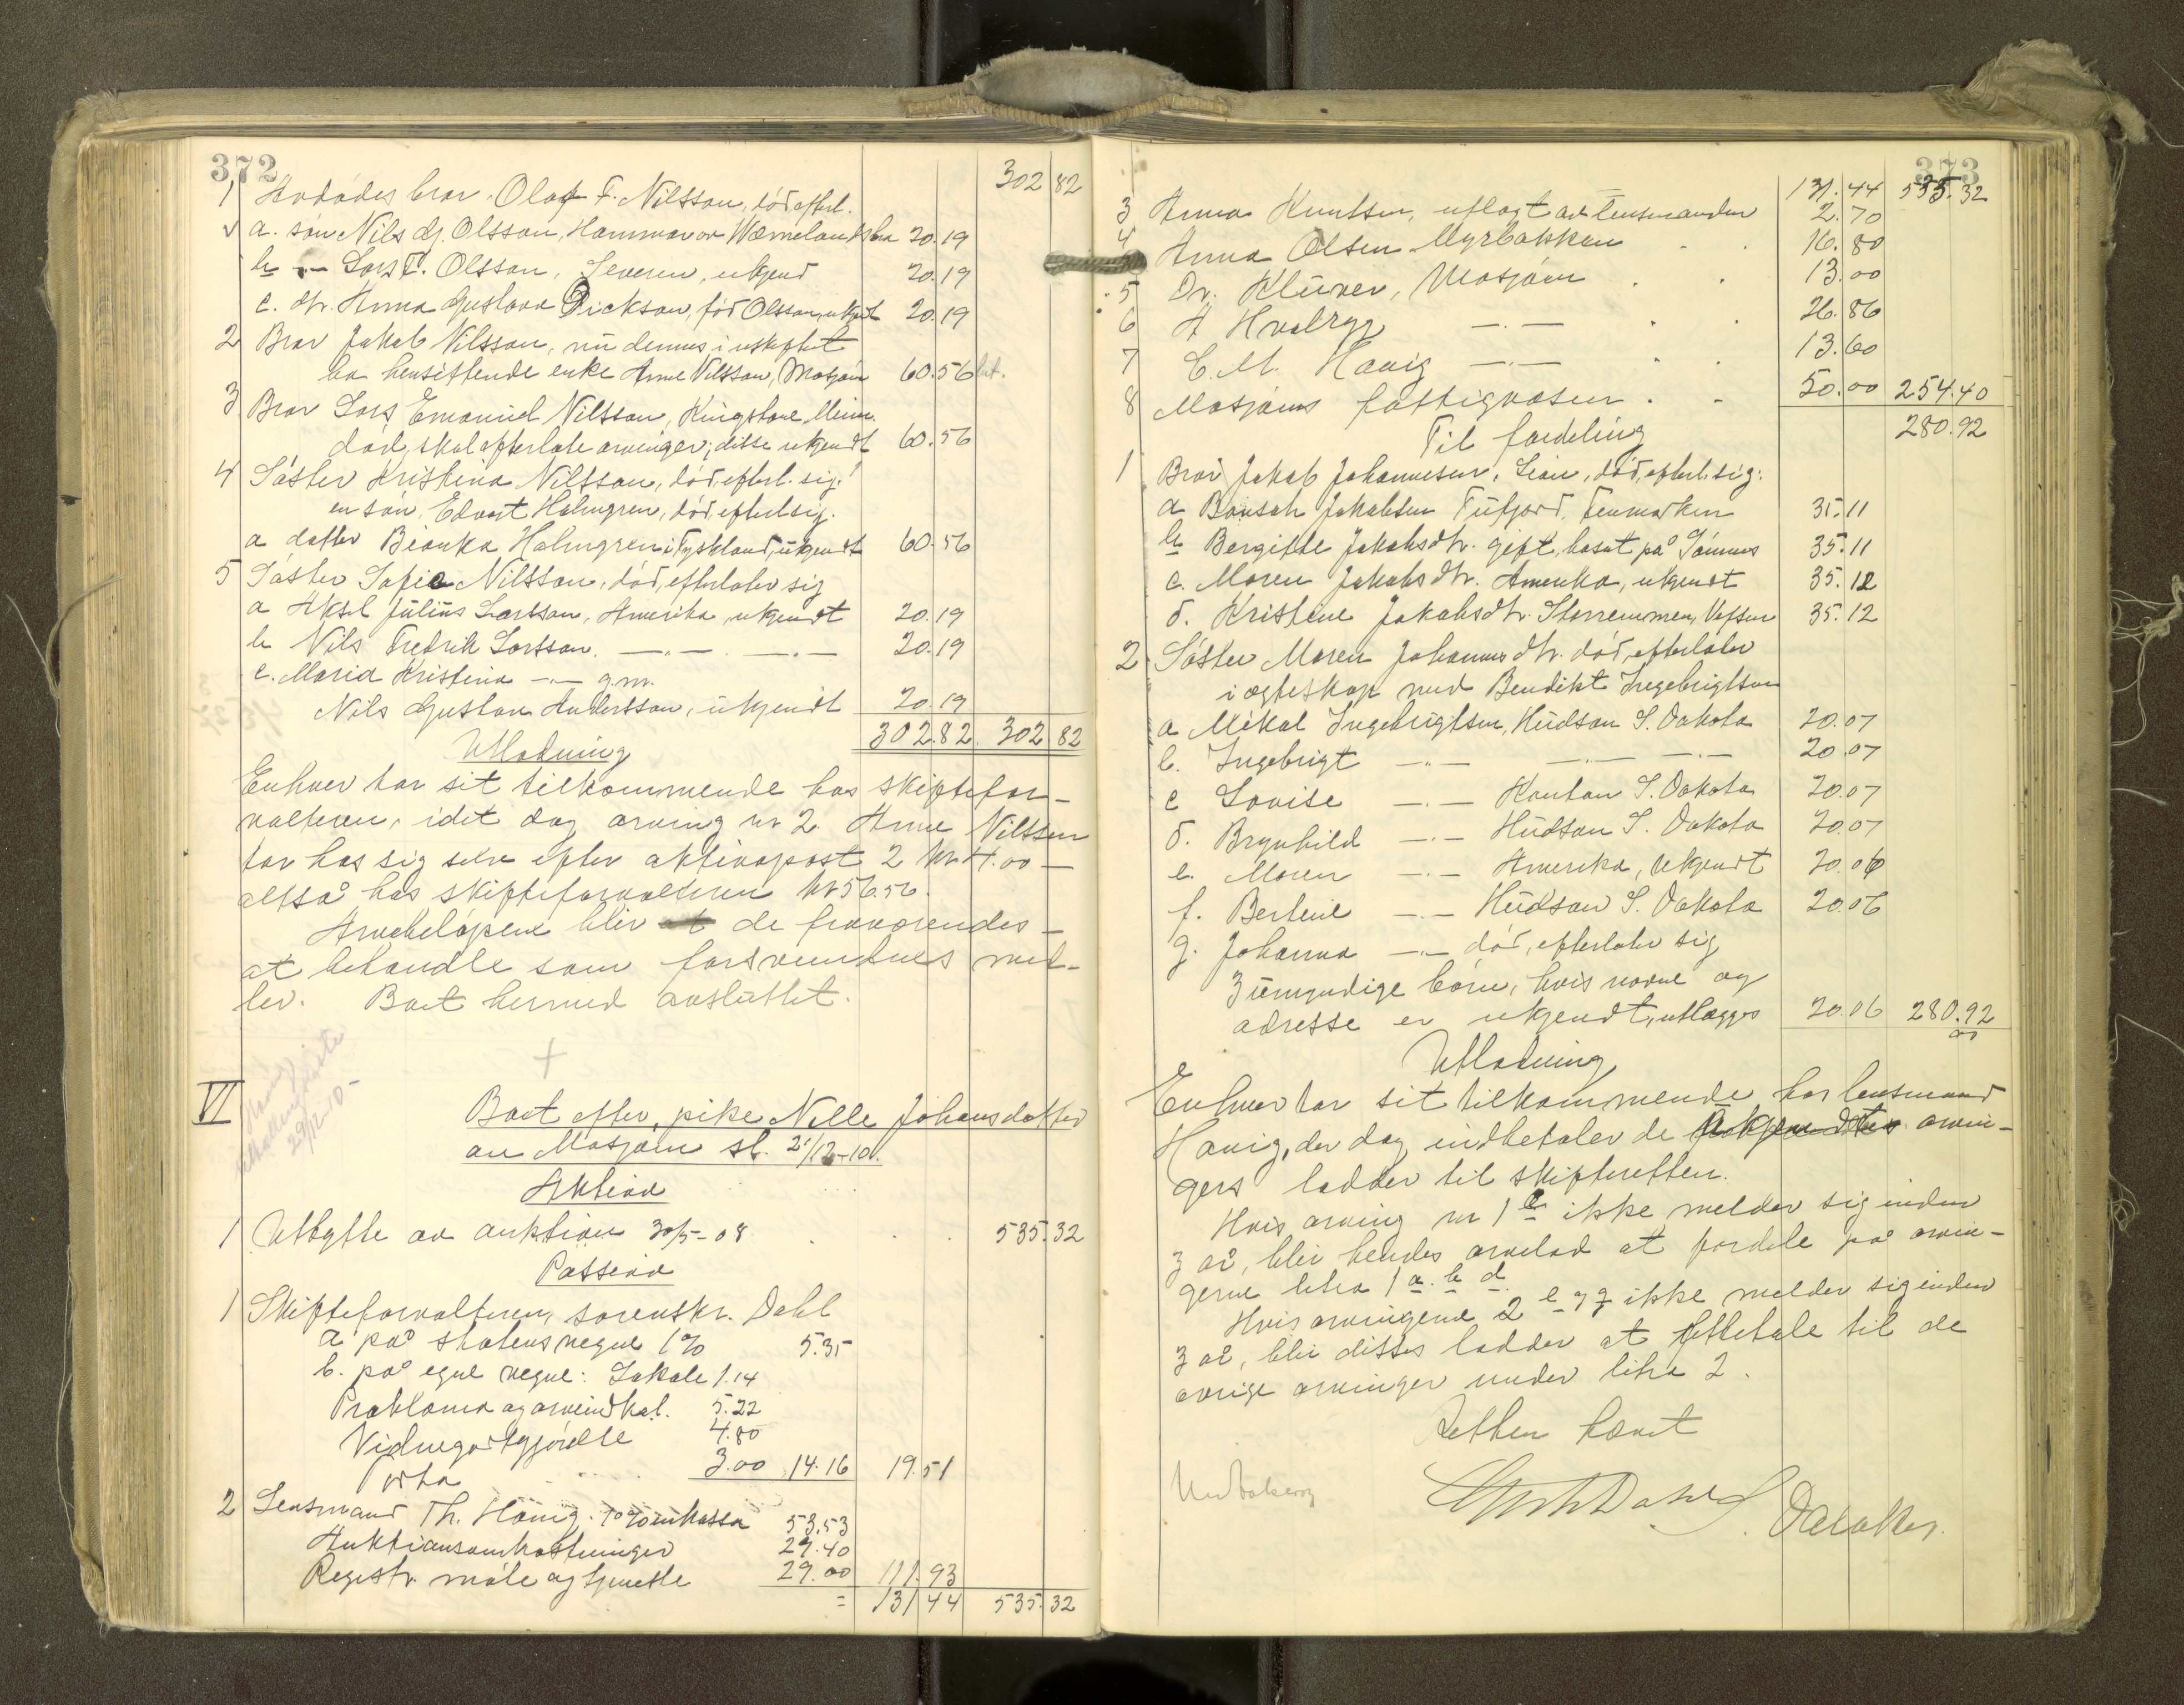 372
302 82
1 Avdødes bror Olaf F. Nilsson, død, efterl.
a. søn Nils G. Olsson, Hammar av Wærmelandsbro 20.19
b -"- Lars F. Olsson, Severen, ukjend 20.19
c. dtr. Anna Gustava Dickson, född Olsson, ukjent 20.19
2 Bror Jakob Nilsson, nu dennes i uskiftet
bo hensittende enke Anne Nilsson, Mosjøen 60.56
3 Bror Lars Emanuel Nilsson, Kingstone Minn.
død, skal efterlate arvinger; disse ukjendt 60.56
4 Søster Kristina Nilsson, død, efterl. sig:
en søn, Edvart Halmgren, død, efterl. sig.
a datter Bianka Halmgren i Tyskland, ukjendt 60.56
5 Søster Sofie Nilsson, død, efterlater sig
a Aksel Julius Larsson, Amerika, ukjendt 20.19
b Nils Fredrik Larsson. -"- -"- 20.19
c. Maria Kristina -"- g.m.
Nils Gustav Andersson, ukjendt 20.19
302.82 302 82
Utlodning
Enhver har sit tilkommende hos skiftefor-
valteren, idet dog arving nr 2 Anne Nilsson
har hos sig selv efter aktivapost 2 kr 4.00 -
altså hos skifteforvalteren kr 56.56.
Arvebeløpene blir at de fraværendes -
at behandle som forsvundnes mid-
ler. Boet hermed avsluttet.
29/12-10-
VI
Boet efter pike Nelle Johansdatter
av Mosjøen sl. 21/12-10.
Aktiva
1 Utbytte av auktion 30/5-08 . . . 535.32
Passiva
1 Skifteforvalteren, sorenskr. Dahl
a på statens vegne 1% 5.35
b. på egne vegne: Lokale 1.14
Proklama og arveindkal. 5.22
Vidnegodtgjørelse 4.80
Porto 3.00 14.16 19.51
2 Lensmand Th. Havig. 10% inkasso 53.53
Auktionsomkostninger 29.40
Registr. møte og tjeneste 29.00 111.93
= 131 44 535.32
373
131.44 535.32
3 Anna Knutsen, utlagt av lensmanden 2.70
4 Anna Olsen Myrbakken . . 16.80
5 Dr. Klüver, Mosjøen . . 13.00
6 A Hvalryg -"- . . 26.86
7 C. M. Havig -"- . . 13.60
8 Mosjøens fattigvæsen . . 50.00 254.40
Til fordeling 280.92
1 Bror Jakob Johannesen, Leien, død, efterl. sig:
a Bansah Jakobsen Tufjord, Finmarken 35.11
b Bergitte Jakobsdtr. gift, bosat på Tømmes 35.11
c. Maren Jakobsdtr. Amerika, ukjendt 35.12
d. Kristine Jakobsdtr. Storremmen, Vefsen 35.12
2 Søster Maren Johannesdtr. død, efterlater
i ægteskap med Bendikt Ingebrigtsen
a Mikal Ingebrigtsen, Hudson S. Dakota 20.07
b. Ingebrigt -"- -"- -"- 20.07
c Lovise -"- Kanton S. Dakota 20.07
d. Brynhild -"- Hudson S. Dakota 20.07
e. Maren -"- Amerika, ukjendt 20.06
f. Bertine -"- Hudson S. Dakota 20.06
g. Johanna -"- død, efterlater sig
3 umyndige børn, hvis navne og
adresse er ukjendt, utlægges 20.06 280.92
Utlodning
Enhver har sit tilkommende hos lensmand
Havig, der dog indbetaler de ukjendtes arvin-
gers lodder til skifteretten.
Hvis arving nr 1 c ikke melder sig inden
3 år, blir hendes arvelod at fordele på arvin-
gerne litra 1 a. b d.
Hvis arvingerne 2 e og g ikke melder sig inden
3 år, blir disses lodder at utbetale til de
øvrige arvinger under litra 2.
Retten hævet